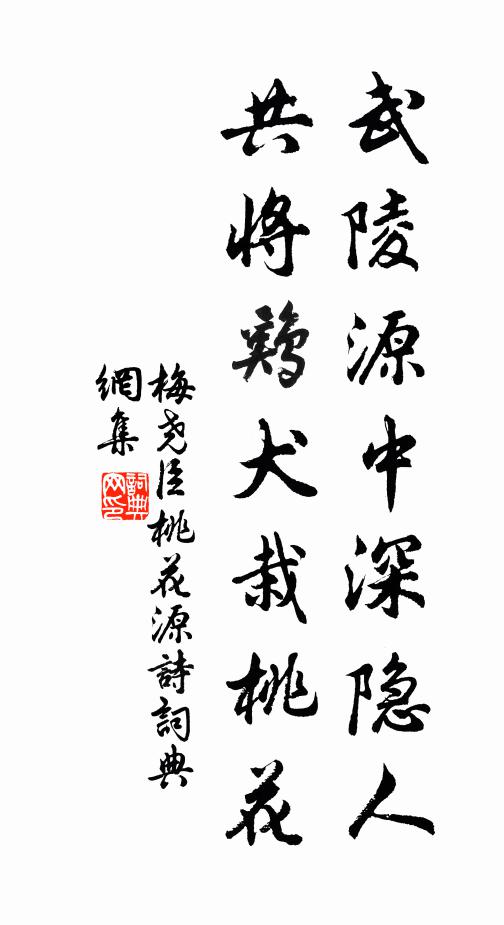 武陵源中深隐人
共將鷄犬栽桃花
梅尧臣桃花源詩詞典
網集
詞典
网印